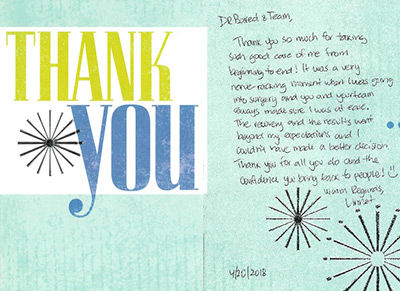 THANK
YOU
Dr Bared & Team,
Thank you so much for taking
such good care of me from
beginning to end! It was a very
nerve-racking moment when I was going
into surgery and you and your team
always made sure I was at ease.
The recovery and the results went
beyond my expectations and I
couldn't have made a better decision.
Thank you for all you do and the
confidence you bring back to people!
Warm Regards,
4/20/2018